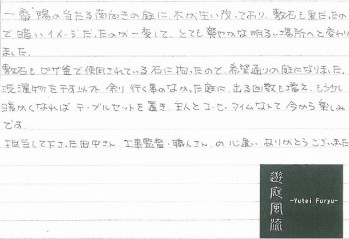 一番陽の当たる南向きの庭に、木が生い茂っており、敷石も黒だったの
で暗いイメージだったのが一変して、とても華やかな明るい場所へと変わり
ました。
敷石もピザ窯で使用されている石に拘ったので、希望通りの庭になりました。
洗濯物を干す以外、余り行く事のなかった庭に、出る回数も増え、もう少し
暖かくなればテーブルセットを置き、主人とコーヒータイムなんて今から楽しみ
です。
担当して下さった田中さん、工事監督・職人さん、の心遣い ありがとうございました
遊庭風流
-Yutei Furyu-